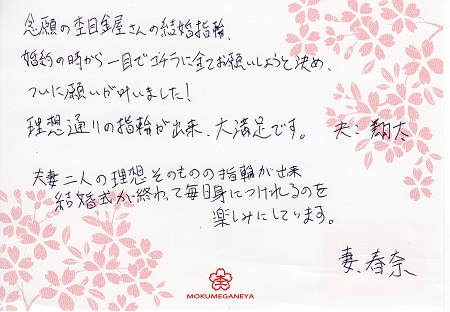 念願の杢目金屋さんの結婚指輪、
婚約の時から一目でコチラに全てお願いしようと決め、
ついに願いが叶いました!
理想通りの指輪が出来、大満足です。 夫:翔太
夫妻二人の理想そのものの指輪が出来
結婚式が終わって毎日身につけれるのを
楽しみにしています。
妻、春奈
MOKUMEGANEYA